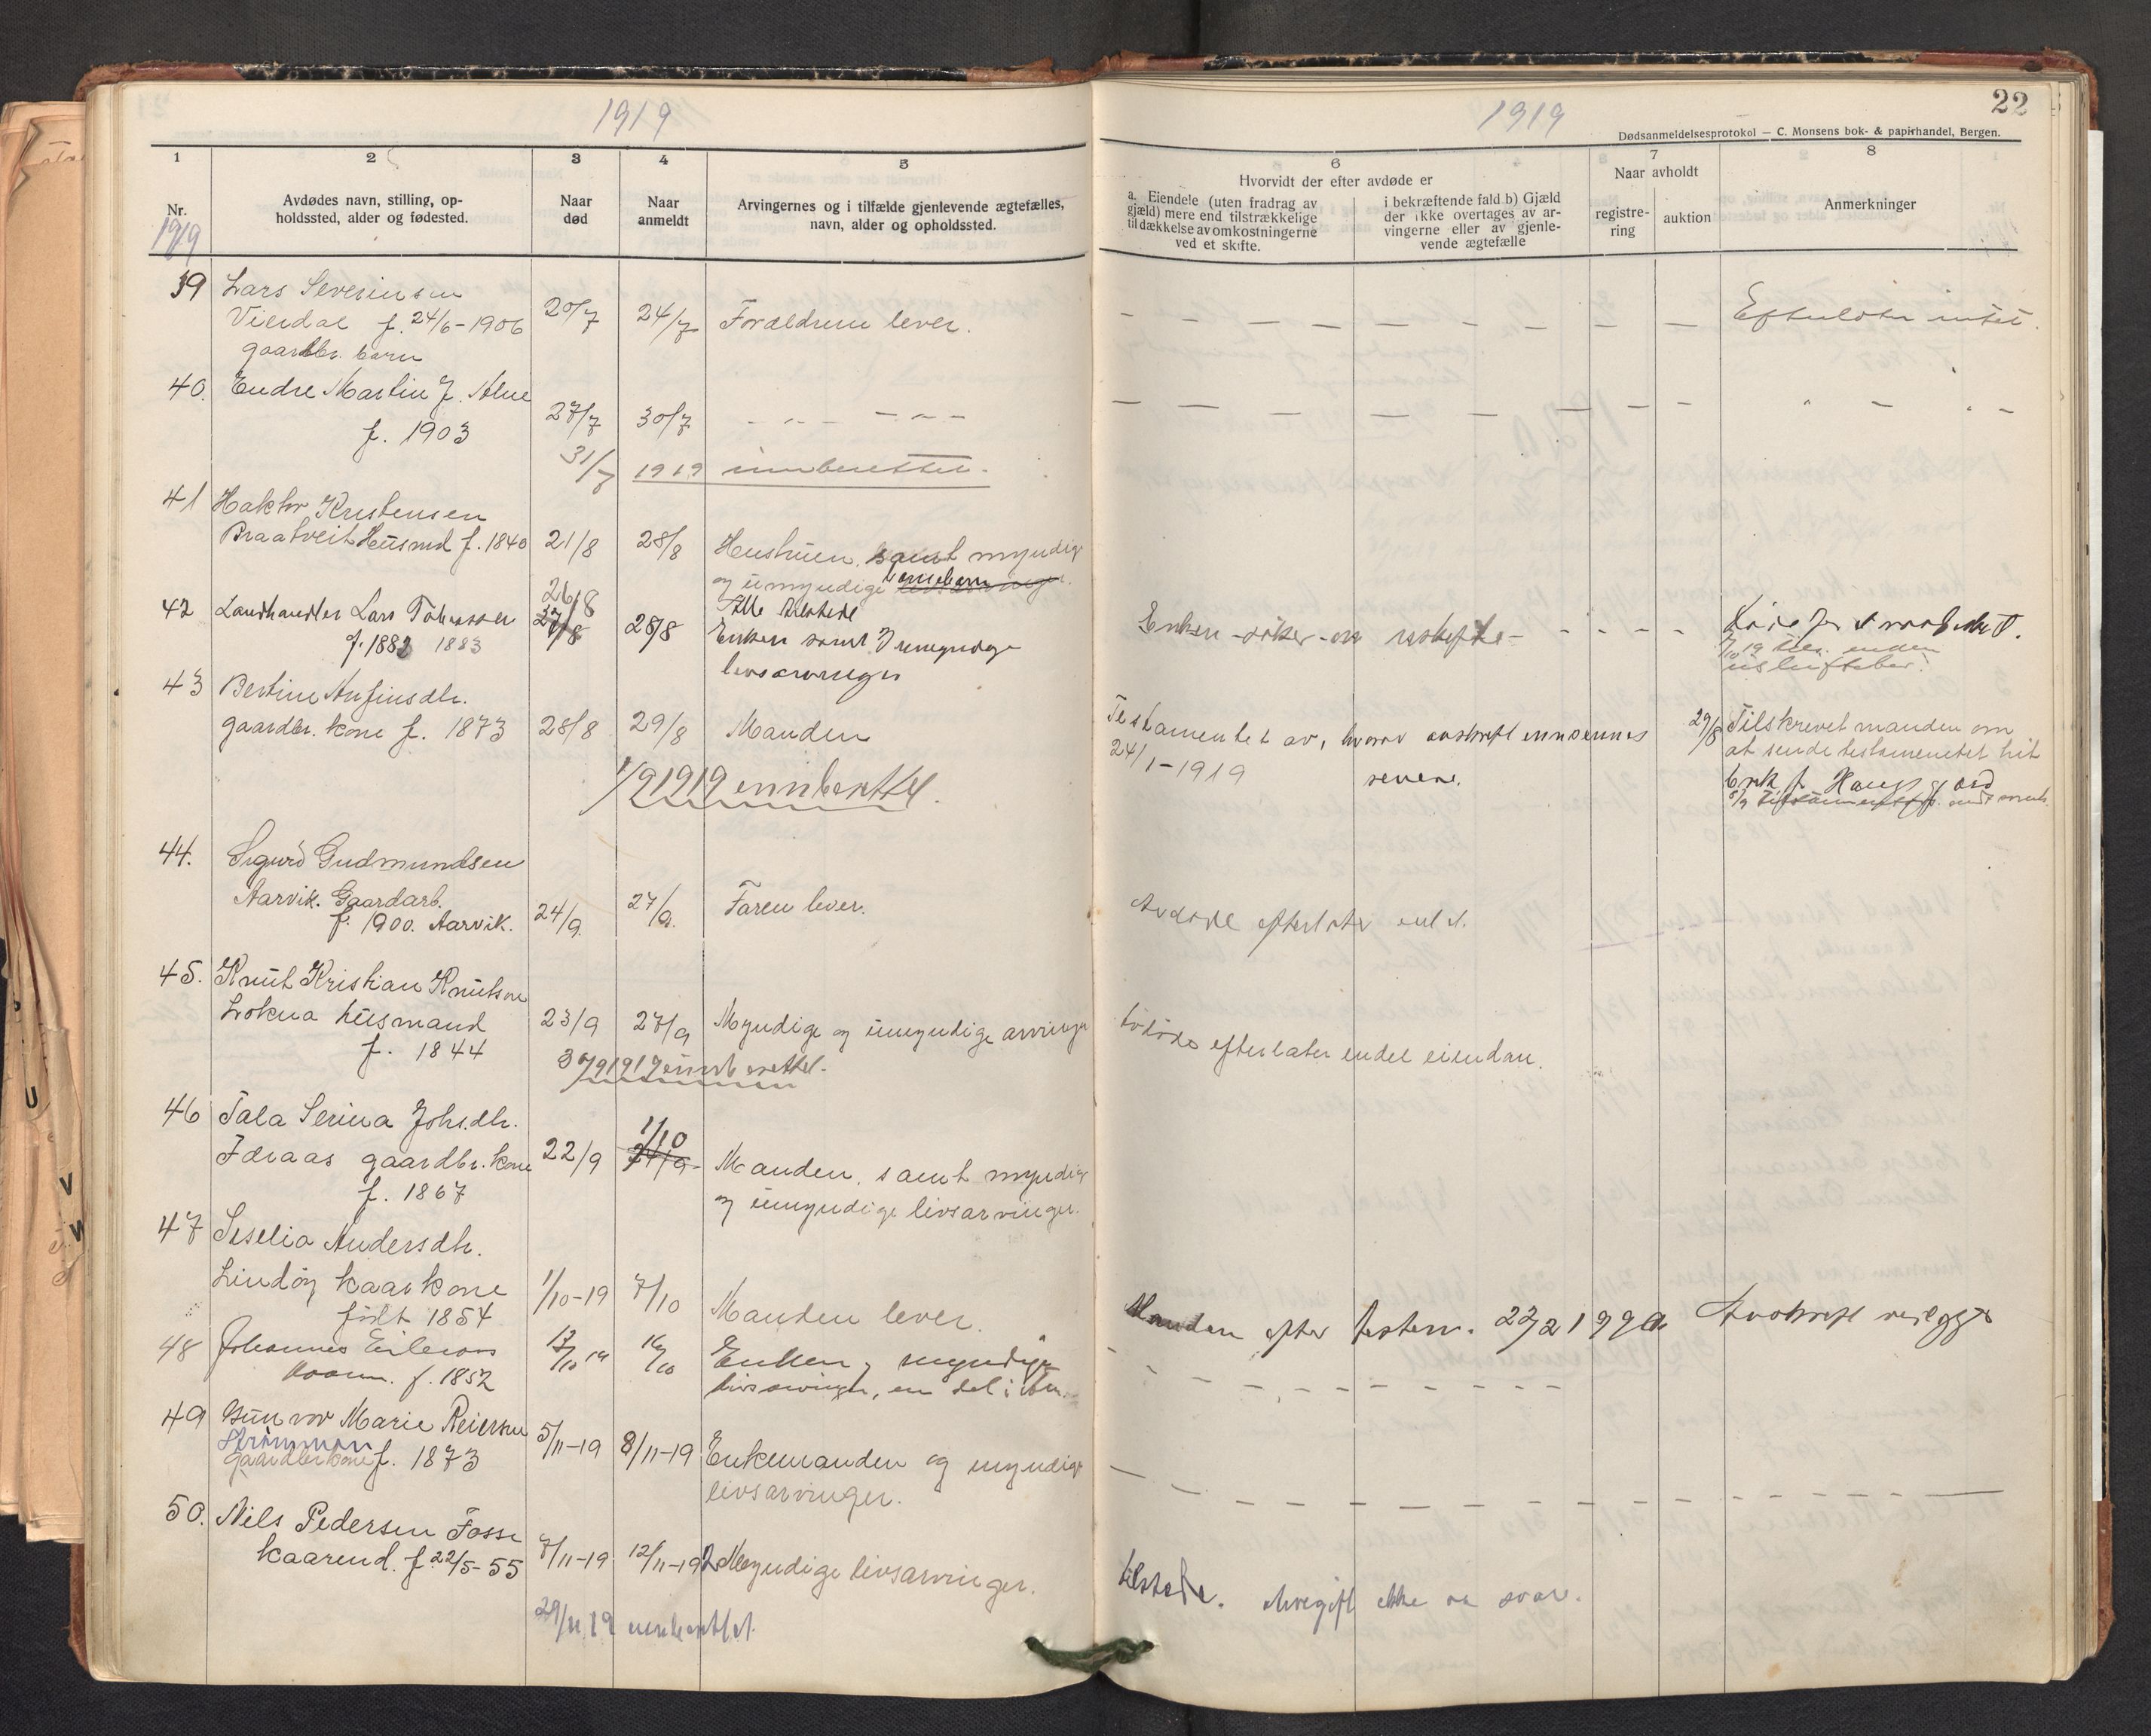 1919
1
2
3
4
5
Nr.
Avdødes navn, stilling, op-
holdssted, alder og fødested.
Naar
død
Naar
anmeldt
Arvingernes og i tilfælde gjenlevende ægtefælles,
navn, alder og opholdssted.
1919
39 Lars Severinsen
Vierdal f. 24/6-1906 20/7 24/7 Forældrene lever.
gaardbr. barn
40. Endre Martin J. Alne
f. 1903 27/7 30/7 - " - - " -
31/7 1919 innberettet.
41 Haktor Kristensen
Braatveit Husmd f. 1840 21/8 28/8 Hustruen, samt myndige
og umyndige
Alle tilstede
26/8
42 Landhandler Lars Tønnessen 27/8 28/8 Enken samt 7 umyndige
f. 1882 1883
livsarvinger
43 Bertine Anfinsdtr.
gaardbr. kone f. 1873 28/8 29/8 Manden
1/9 1919 innberettet.
44. Sigurd Gudmundsen
Aarvik. Gaardarb.
f. 1900. Aarvik. 24/9. 27/9. Faren lever.
45. Knut Kristian Knutsen
Lokna husmand 23/9 27/9 Myndige og umyndige arvinger
f. 1844
30/9 1919 innberettet.
46 Tala Serina Johs.dtr. 1/10
Idraas gaardbr. kone 22/9 Manden, samt myndige
f. 1867 og umyndige livsarvinger.
47 Seselia Andersdtr.
Lindøy kaarkone 1/10-19 7/10 Manden lever.
født 1854
48 Johannes
f. 1852 Enken, myndige
livsarvinger, en del i
49 Gunvor Marie Reiersen
Strømmen
gaardbr kone f. 1873 5/11-19 8/11-19 Enkemanden og myndige
livsarvinger.
50. Nils Pedersen Fosse
kaarmd. f. 22/5-55 7/11-19 12/11-19 2 Myndige livsarvinger.
29/11 19 innberettet.
1919
22
Dødsanmeldelsesprotokol — C. Monsens bok- & papirhandel, Bergen.
6
7
8
Hvorvidt der efter avdøde er
a. Eiendele (uten fradrag av
gjæld) mere end tilstrækkelige
til dækkelse av omkostningerne
ved et skifte.
i bekræftende fald b) Gjæld
der ikke overtages av ar-
vingerne eller av gjenle-
vende ægtefælle
Naar avholdt
registre-
ring
auktion
Anmerkninger
Efterlater intet.
Enken søker om uskifte
7/10 19 enken
uskiftebev.
Testamentet av, hvorav avskrift
24/1-1919 senere.
29/8 Tilskrevet manden om
at sende testamentet hit
Avdøde efterlater intet.
Avdøde efterlater endel eiendom.
Manden efter testam. Avskrift vedlegges
tilstede. Arvegift ikke at svare.